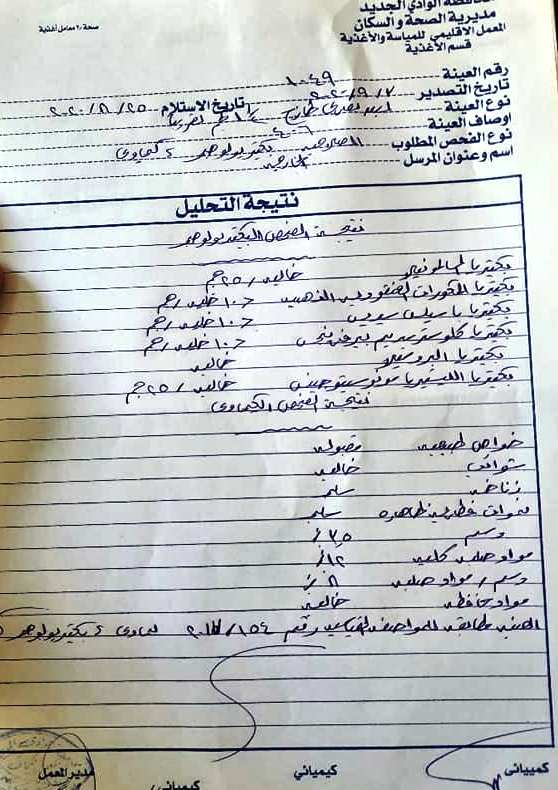 صحة ٢٠ معامل أغذية
محافظة الوادي الجديد
مديرية الصحة والسكان
المعمل الاقليمي للمياسة والأغذية
قسم الأغذية
رقم العينة ١٠٤٩
تاريخ التصدير ٢٠٢٠/٩/٧ تاريخ الاستلام ٢٠٢٠/٨/٢٥
نوع العينة
اوصاف العينة
نوع الفحص المطلوب الصلاحية بكتريولوجي و كيماوي
اسم وعنوان المرسل الخارجة
نتيجة التحليل
نتيجة الفحص البكتريولوجي
بكتريا السالمونيلا خالية / ٢٥جم
بكتريا المكورات العنقودية الذهبية < ١٠ خلية/جم
بكتريا باسيلس سيريس < ١٠ خلية/جم
بكتريا كلوستريديم بيرفرنجنس < ١٠ خلية/جم
بكتريا البروسيلا خالية
بكتريا الليستريا مونوسيتوجينس خالية / ٢٥جم
نتيجة الفحص الكيماوي
خواص طبيعية مقبولة
شوائب خالية
زناخة سلبي
نموات فطرية ظاهرة سلبي
دسم ٣٫٥٪
مواد صلبة كلية ١٢٪
دسم / مواد صلبة
مواد حافظة خالية
العينة مطابقة للمواصفة القياسية رقم ١٥٤ / كيماوي و بكتريولوجي
كيميائى كيميائي كيميائي مدير المعمل